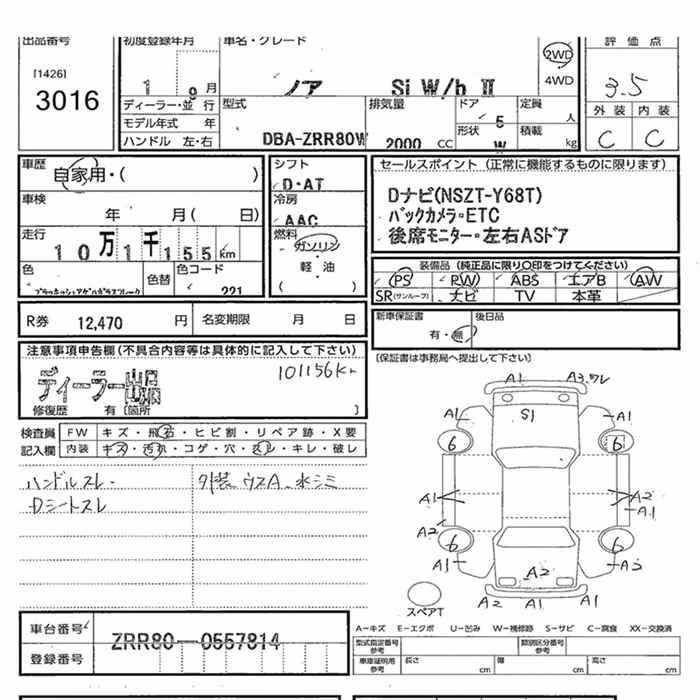 出品番号 初度登録年月 車名・グレード 評価点
[1426] 2WD
3016 1 9月 ノア Si W/b Ⅱ 4WD 3.5
ディーラー・並行 型式 排気量 ドア 定員 外装 内装
モデル年式 年 5 人
ハンドル 左・右 DBA-ZRR80W 2000 CC 形状 W 積載 kg C C
車歴 自家用・( ) シフト セールスポイント (正常に機能するものに限ります)
D・AT Dナビ(NSZT-Y68T)
車検 冷房 バックカメラ・ETC
年 月( 日) AAC 後席モニター・左右ASドア
走行 10万1千155km 燃料 ガソリン
軽・油 装備品 (純正品に限り○印をつけてください)
色 色替 色コード ( ) PS PW ABS エアB AW
ブラッキッシュアゲハガラスフレーク 221 SR(サンルーフ) ナビ TV 本革
R券 12,470 円 名変期限 月 日 新車保証書 後日品
有・無
注意事項申告欄(不具合内容等は具体的に記入して下さい) [保証書は事務局へ提出して下さい]
ディーラー出品 101156Km
修復歴 有 [箇所 ]
検査員 FW キズ・飛石・ヒビ割・リペア跡・X要
記入欄 内装 キズ・汚れ・コゲ・穴・スレ・キレ・破レ
ハンドルスレ・ 外装 ウスA、水シミ
Dシートスレ
A1 A3.ワレ
A1 S1 A1
6 6
A1 A2
A2 A1
6 6
A1 A2 A2
A2 A1 A1
スペアT
A-キズ E-エクボ U-凹み W-補修跡 S-サビ C-腐食 XX-交換済
車台番号 ZRR80-0557814 型式指定番号 参考 類別区分番号 参考
登録番号 車庫証明用 参考 長さ cm 幅 cm 高さ cm